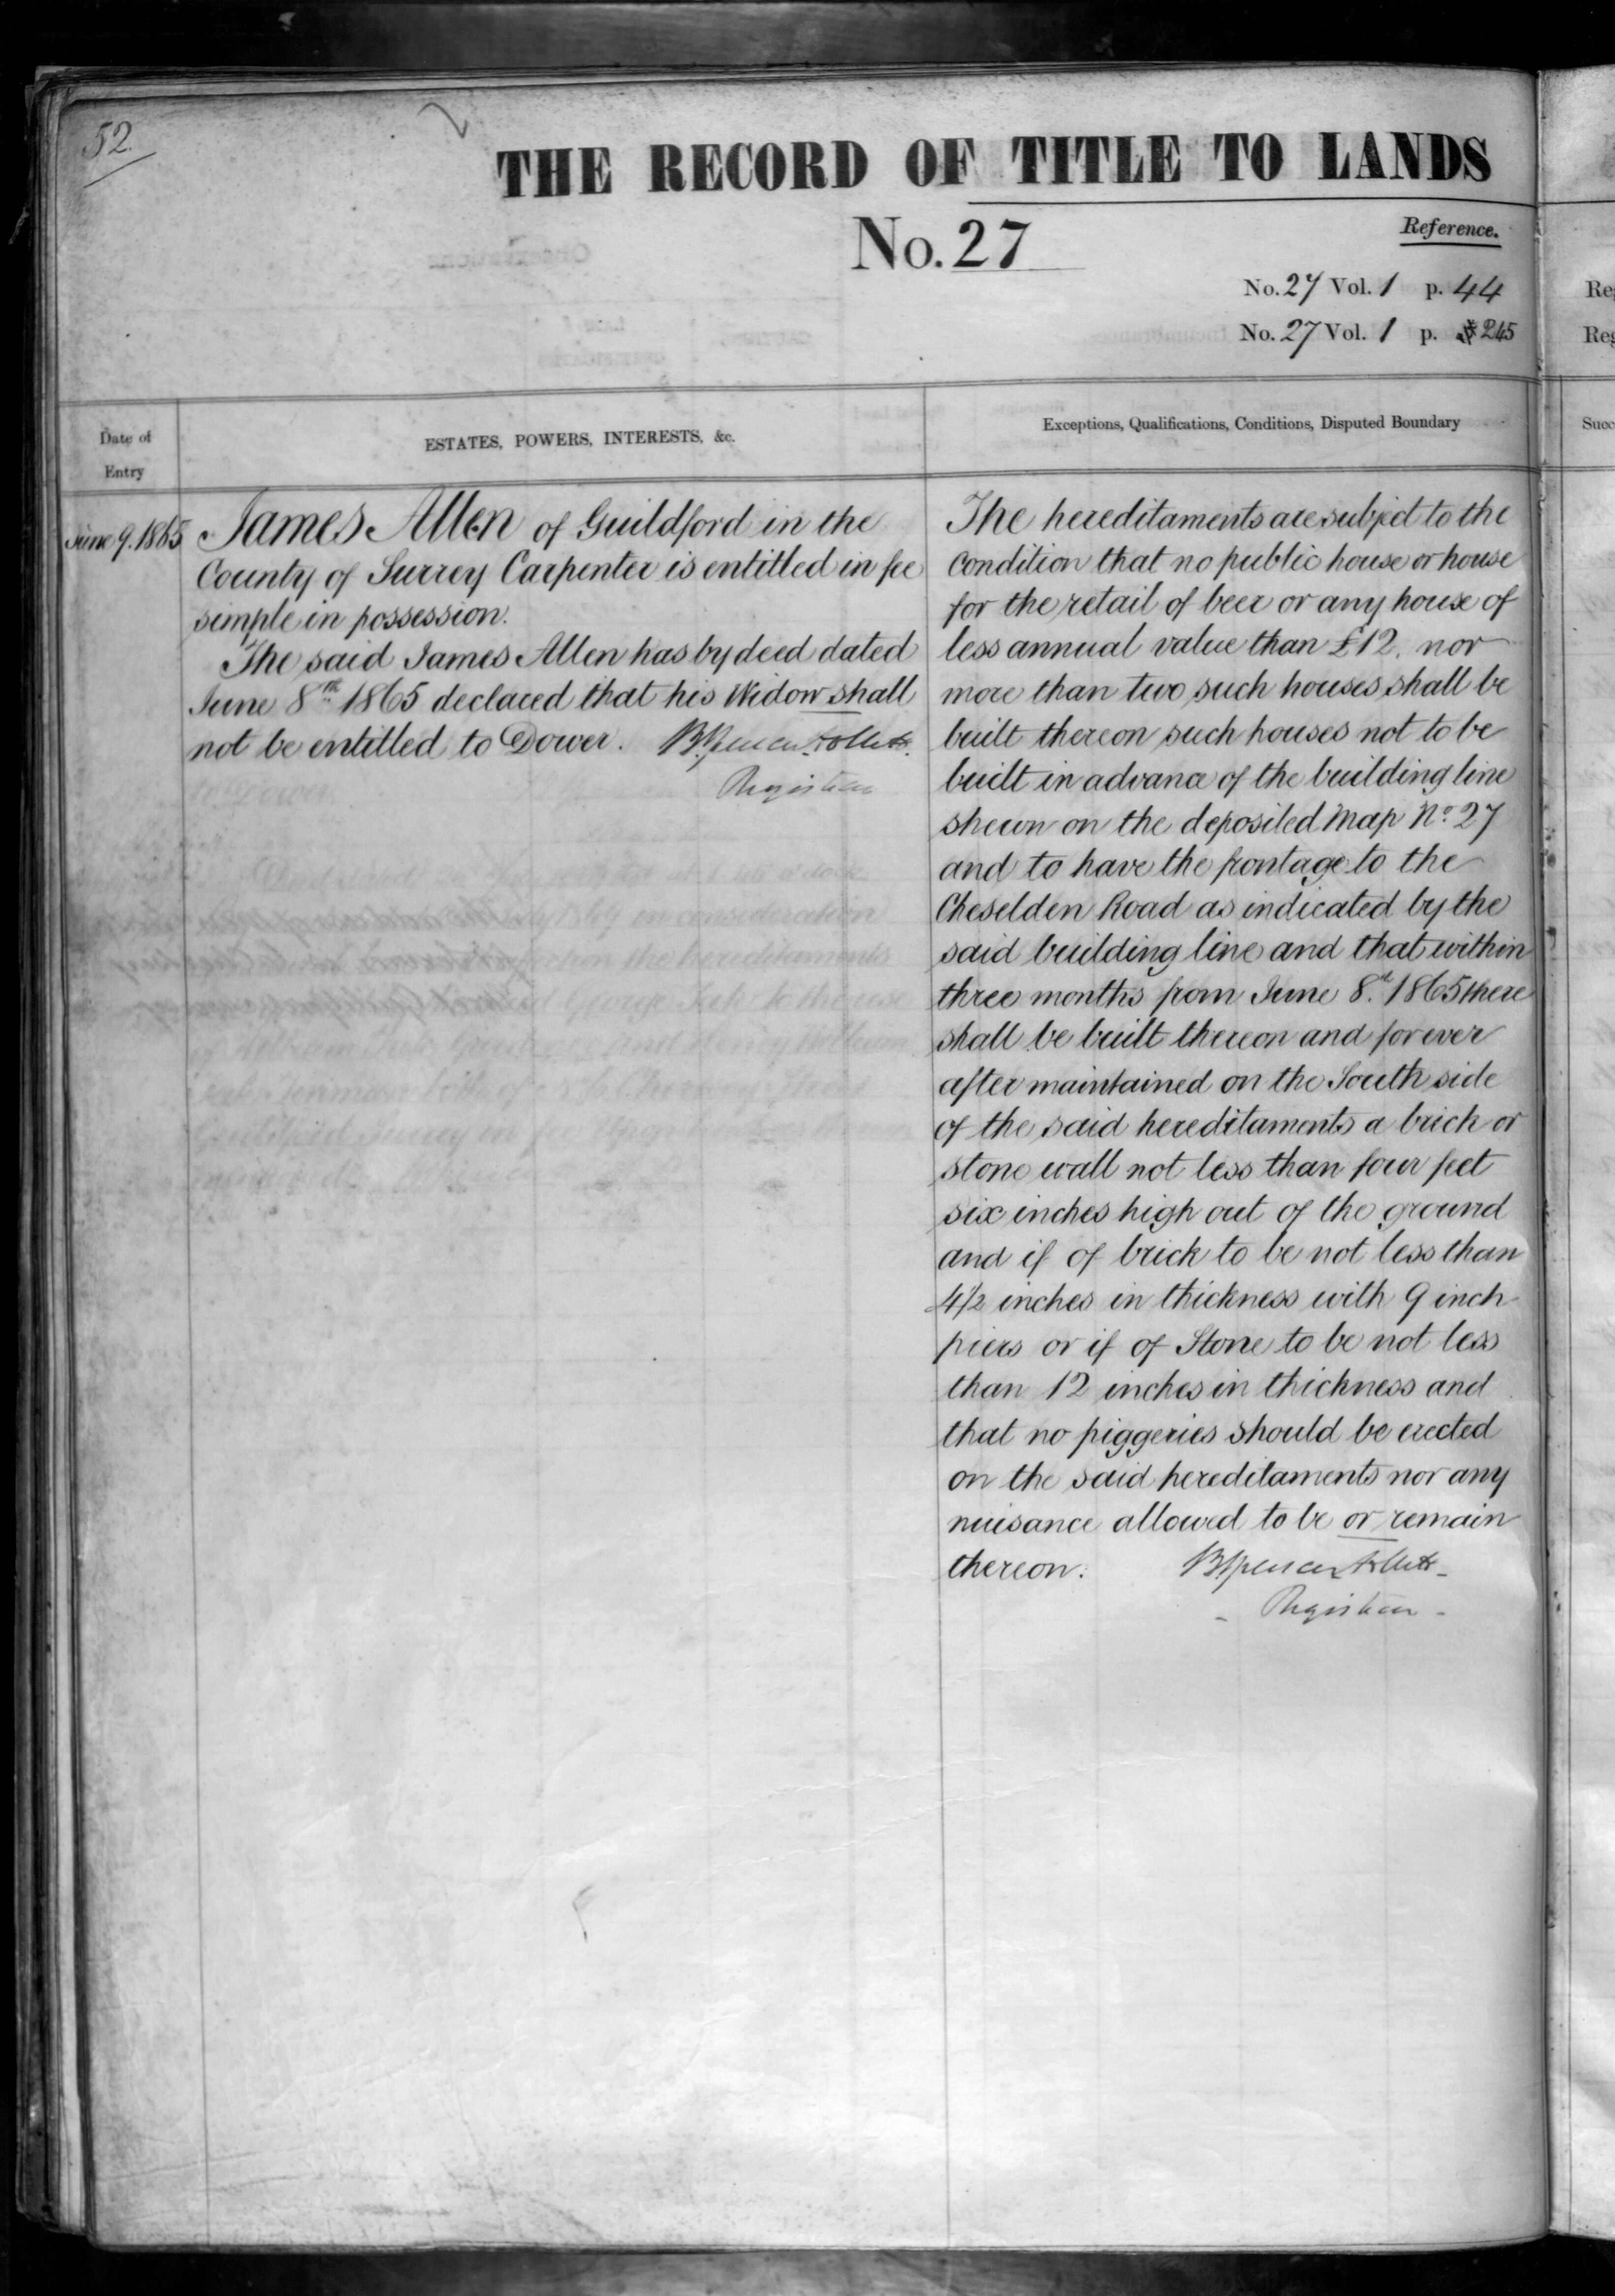 52.
THE RECORD OF TITLE TO LANDS
No. 27
Reference.
No. 27 Vol. 1 p. 44
No. 27 Vol. 1 p. 245
Date of
Entry
ESTATES, POWERS, INTERESTS, &c.
Exceptions, Qualifications, Conditions, Disputed Boundary
June 9. 1865
James Allen of Guildford in the
County of Surrey Carpenter is entitled in fee
simple in possession.
The said James Allen has by deed dated
June 8th 1865 declared that his Widow shall
not be entitled to Dower. B Spencer Follett.
Registrar
The hereditaments are subject to the
condition that no public house or house
for the retail of beer or any house of
less annual value than £12. nor
more than two such houses shall be
built thereon such houses not to be
built in advance of the building line
shewn on the deposited Map No. 27
and to have the frontage to the
Cheselden Road as indicated by the
said building line and that within
three months from June 8th 1865 there
shall be built thereon and for ever
after maintained on the South side
of the said hereditaments a brick or
stone wall not less than four feet
six inches high out of the ground
and if of brick to be not less than
4½ inches in thickness with 9 inch
piers or if of Stone to be not less
than 12 inches in thickness and
that no piggeries should be erected
on the said hereditaments nor any
nuisance allowed to be or remain
thereon. B Spencer Follett
- Registrar -
Reg
Reg
Succ